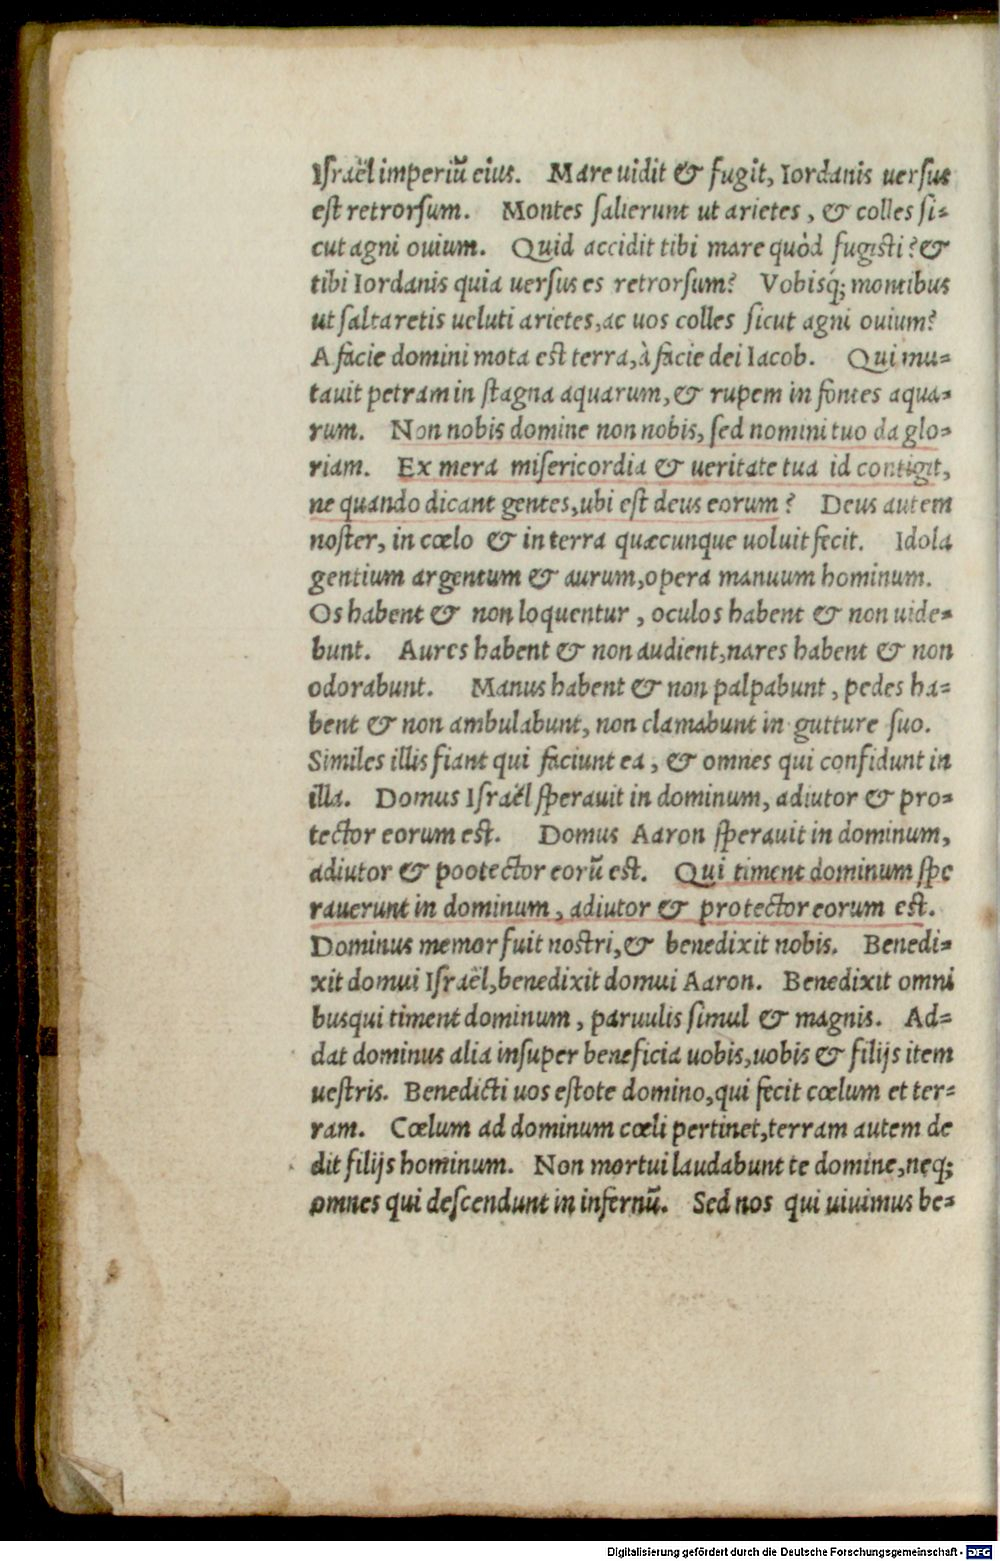 Iſraël imperiũ eius. Mare uidit & fugit, Iordanis uerſus
eſt retrorſum. Montes ſalierunt ut arietes, & colles ſi-
cut agni ouium. Quid accidit tibi mare quòd fugiſti? &
tibi Iordanis quia uerſus es retrorſum? Vobisq́; montibus
ut ſaltaretis ueluti arietes, ac uos colles ſicut agni ouium?
A facie domini mota eſt terra, à facie dei Iacob. Qui mu-
tauit petram in ſtagna aquarum, & rupem in fontes aqua-
rum. Non nobis domine non nobis, ſed nomini tuo da glo-
riam. Ex mera miſericordia & ueritate tua id contigit,
ne quando dicant gentes, ubi eſt deus eorum? Deus autem
noſter, in cœlo & in terra quæcunque uoluit fecit. Idola
gentium argentum & aurum, opera manuum hominum.
Os habent & non loquentur, oculos habent & non uide-
bunt. Aures habent & non audient, nares habent & non
odorabunt. Manus habent & non palpabunt, pedes ha-
bent & non ambulabunt, non clamabunt in gutture ſuo.
Similes illis fiant qui faciunt ea, & omnes qui confidunt in
illa. Domus Iſraël ſperauit in dominum, adiutor & pro-
tector eorum eſt. Domus Aaron ſperauit in dominum,
adiutor & pootector eorũ eſt. Qui timent dominum ſpe
rauerunt in dominum, adiutor & protector eorum eſt.
Dominus memor fuit noſtri, & benedixit nobis. Benedi-
xit domui Iſraël, benedixit domui Aaron. Benedixit omni
busqui timent dominum, paruulis ſimul & magnis. Ad-
dat dominus alia inſuper beneficia uobis, uobis & filijs item
ueſtris. Benedicti uos eſtote domino, qui fecit cœlum et ter-
ram. Cœlum ad dominum cœli pertinet, terram autem de
dit filijs hominum. Non mortui laudabunt te domine, neq;
omnes qui deſcendunt in infernũ. Sed nos qui uiuimus be-
Digitalisierung gefördert durch die Deutsche Forschungsgemeinschaft - DFG